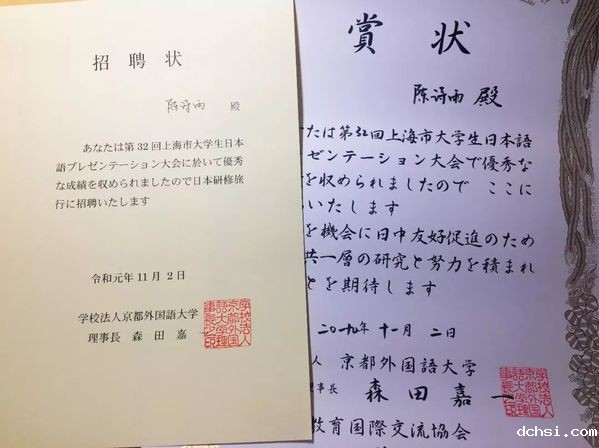 招聘状
陈诗雨 殿
あなたは第32回上海市大学生日本
語プレゼンテーション大会に於いて優秀
な成績を収められましたので日本研修旅
行に招聘いたします
令和元年11月2日
学校法人京都外国語大学
理事長 森田嘉一
学校法人
京都外国
語大学理
事長之印
賞状
陈诗雨 殿
たは第32回上海市大学生日本語
ゼンテーション大会で優秀な
を収められましたので ここに
いたします
を機会に日中友好促進のため
共一層の研究と努力を積まれ
とを期待します
二〇一九年十一月二日
人 京都外国語大学
事長 森田嘉一
学校法人
京都外国
語大学理
事長之印
教育国際交流協会
dchsi.com